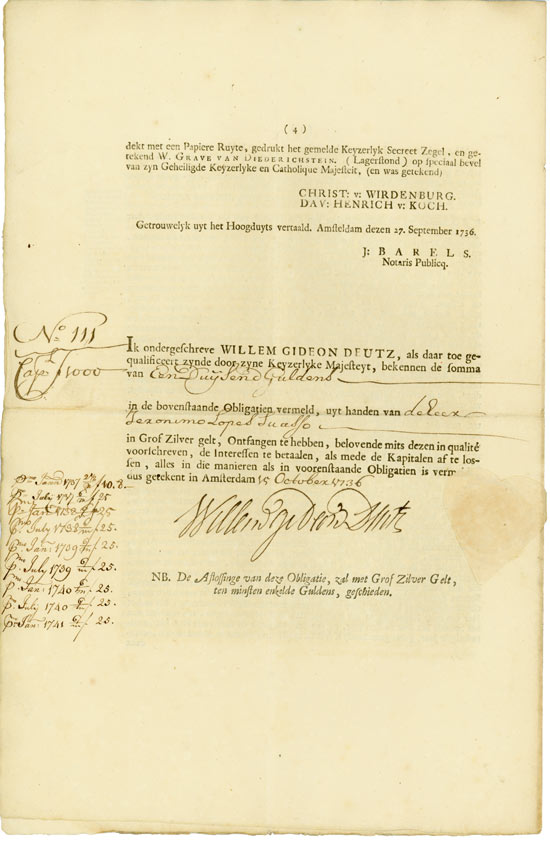 ( 4 )
dekt met een Papiere Ruyte, gedrukt het gemelde Keyzerlyk Secreet Zegel, en ge-
tekend W. GRAVE VAN DIEGERICHSTEIN. ( Lagerstond ) op speciaal bevel
van zyn Geheiligde Keyzerlyke en Catholique Majesteit, (en was getekend)
CHRIST: v: WIRDENBURG.
DAV: HENRICH v: KOCH.
Getrouwelyk uyt het Hoogduyts vertaald. Amsteldam dezen 27. September 1736.
J: BARELS.
Notaris Publicq.
No 111
Cap. ƒ 1000
Ik ondergeschreve WILLEM GIDEON DEUTZ, als daar toe ge-
qualificeert zynde door zyne Keyzerlyke Majesteyt, bekennen de somma
van Een Duijsend Guldens
in de bovenstaande Obligatien vermeld, uyt handen van de Heer
Jeronimo Lopes Suasso
in Grof Zilver gelt, Ontfangen te hebben, belovende mits dezen in qualité
voorschreven, de Interessen te betaalen, als mede de Kapitalen af te los-
sen, alles in die manieren als in voorenstaande Obligatien is verm
dus getekent in Amsterdam 15 October 1736
Willem Gideon Deutz
NB. De Aflossinge van deze Obligatie, zal met Grof Zilver Gelt,
ten minsten enkelde Guldens, geschieden.
1737 ƒ 10.8
pmo July 1737 ƒ 25
pmo Jan 1738 ƒ 25
pmo July 1738 ƒ 25.
pmo Jan: 1739 ƒ 25.
pmo July 1739 ƒ 25.
pmo Jan: 1740 ƒ 25.
pmo July 1740 ƒ 25.
pmo Jan: 1741 ƒ 25.